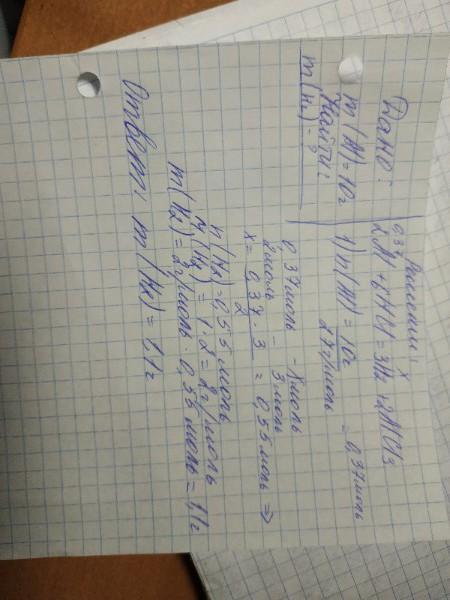 Дано:
m(Al)=10г
Найти:
m(H2)-?
Решение:
0,37 x
2Al + 6HCl = 3H2 + 2AlCl3
1) n(Al) = 10г / 27г/моль = 0,37моль
0,37моль - xмоль
2моль - 3моль
x = 0,37 · 3 / 2 = 0,55моль ⇒
n(H2)=0,55моль
M(H2) = 1·2=2г/моль
m(H2)=2г/моль · 0,55моль = 1,1г
Ответ: m(H2)=1,1г